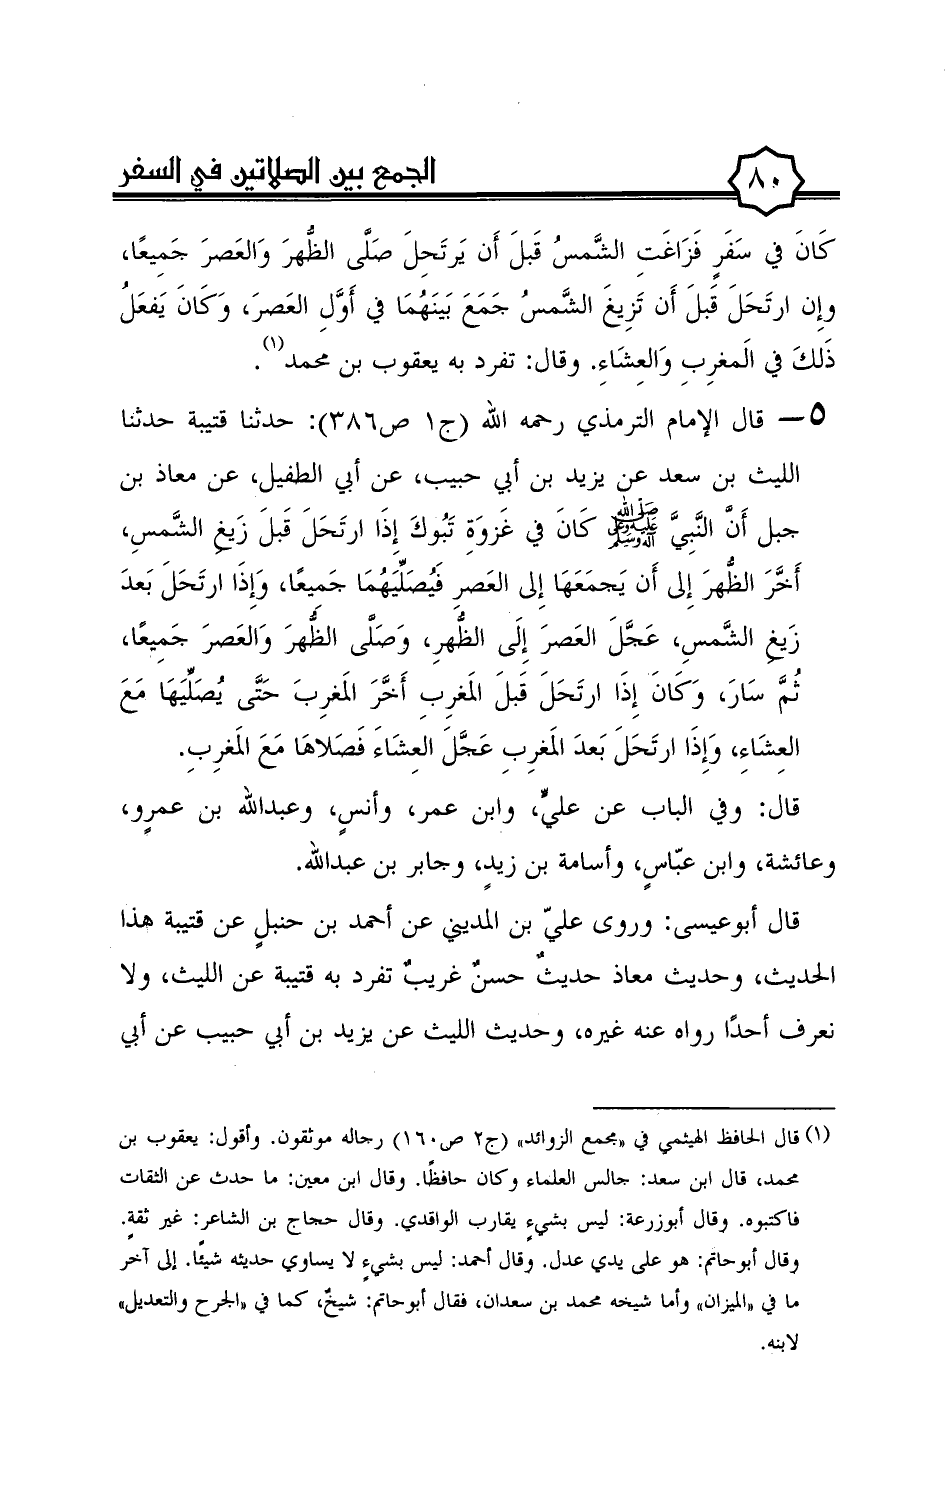 ٨٠ الجمع بين الصلاتين في السفر
كَانَ في سَفَرٍ فَزَاغَت الشَّمسُ قَبلَ أَن يَرتَحِلَ صَلَّى الظُّهرَ وَالعَصرَ جَمِيعًا،
وإِن ارتَحَلَ قَبلَ أَن تَزِيغَ الشَّمسُ جَمَعَ بَينَهُمَا فِي أَوَّلِ العَصرِ، وَكَانَ يَفعَلُ
ذَلكَ فِي الَمغرِبِ وَالعِشَاءِ. وقال: تفرد به يعقوب بن محمد(١).
٥ــ قال الإمام الترمذي رحمه الله (ج١ ص٣٨٦): حدثنا قتيبة حدثنا
الليث بن سعد عن يزيد بن أبي حبيب، عن أبي الطفيل، عن معاذ بن
جبل أَنَّ النَّبِيَّ ﷺ كَانَ فِي غَزوَةِ تَبُوكَ إِذَا ارتَحَلَ قَبلَ زَيغِ الشَّمسِ،
أَخَّرَ الظُّهرَ إِلى أَن يَجمَعَهَا إِلى العَصرِ فَيُصَلِّيَهُمَا جَمِيعًا، وَإِذَا ارتَحَلَ بَعدَ
زَيغِ الشَّمسِ، عَجَّلَ العَصرَ إِلَى الظُّهرِ، وَصَلَّى الظُّهرَ وَالعَصرَ جَمِيعًا،
ثُمَّ سَارَ، وَكَانَ إِذَا ارتَحَلَ قَبلَ الَمغرِبِ أَخَّرَ الَمغرِبَ حَتَّى يُصَلِّيَهَا مَعَ
العِشَاءِ، وَإِذَا ارتَحَلَ بَعدَ الَمغرِبِ عَجَّلَ العِشَاءَ فَصَلاهَا مَعَ الَمغرِبِ.
قال: وفي الباب عن عليٍّ، وابن عمر، وأنسٍ، وعبدالله بن عمرٍو،
وعائشة، وابن عبّاسٍ، وأسامة بن زيدٍ، وجابر بن عبدالله.
قال أبوعيسى: وروى عليّ بن المديني عن أحمد بن حنبلٍ عن قتيبة هذا
الحديث، وحديث معاذ حديثٌ حسنٌ غريبٌ تفرد به قتيبة عن الليث، ولا
نعرف أحدًا رواه عنه غيره، وحديث الليث عن يزيد بن أبي حبيب عن أبي
(١) قال الحافظ الهيثمي في «مجمع الزوائد» (ج٢ ص١٦٠) رجاله موثقون. وأقول: يعقوب بن
محمد، قال ابن سعد: جالس العلماء وكان حافظًا. وقال ابن معين: ما حدث عن الثقات
فاكتبوه. وقال أبوزرعة: ليس بشيءٍ يقارب الواقدي. وقال حجاج بن الشاعر: غير ثقةٍ.
وقال أبوحاتم: هو على يدي عدل. وقال أحمد: ليس بشيءٍ لا يساوي حديثه شيئًا. إلى آخر
ما في «الميزان» وأما شيخه محمد بن سعدان، فقال أبوحاتم: شيخٌ، كما في «الجرح والتعديل»
لابنه.